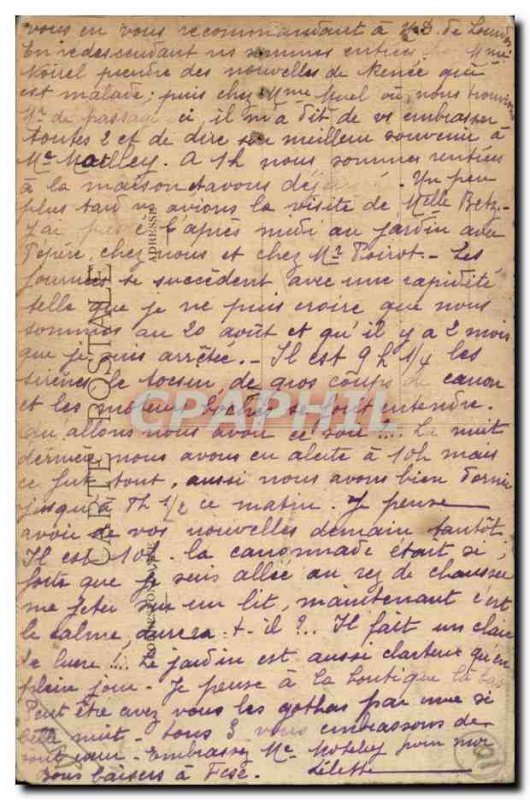 vous en vous recommandant à N.D. de Lourdes
En redescendant ns sommes entrées chez Mme
Noirel prendre des nouvelles de Renée qui
est malade; puis chez Mme Muel où nous trouvions
Mr de passage ici, il m'a dit de vs embrasser
toutes 2 et de dire son meilleur souvenir à
Me Mailley. A 1h nous sommes rentrées
à la maison et avons déjeuné. Un peu
plus tard ns avions la visite de Melle Betz.-
J'ai passé l'après midi au jardin avec
Pépère, chez nous et chez Mr Poirot - Les
journées se succèdent avec une rapidité
telle que je ne puis croire que nous
sommes au 20 août et qu'il y a 2 mois
que je suis arrêtée. - Il est 9h 1/4 les
sirènes le tocsin, de gros coups de canon
et les moteurs boches se font entendre.
Qu'allons nous avoir ce soir !... La nuit
dernière nous avons eu alerte à 10h mais
ce fut tout, aussi nous avons bien dormi
jusqu'à 7h 1/2 ce matin. Je pense
avoir de vos nouvelles demain tantôt.
Il est 10h. la canonnade était si
forte que je suis allée au rez de chaussée
me jeter sur un lit, maintenant c'est
le calme, durera-t-il ?.. Il fait un clair
de lune !.. Le jardin est aussi clair qu'en
plein jour. Je pense à la boutique là bas
Peut être avez vous les gothas par une si
belle nuit - tous 3 vous embrassons de
tout cœur. Embrassez Me pour moi
bons baisers à Lilette
CARTE POSTALE
ADRESSE
CORRESPONDANCE
CPAPHIL